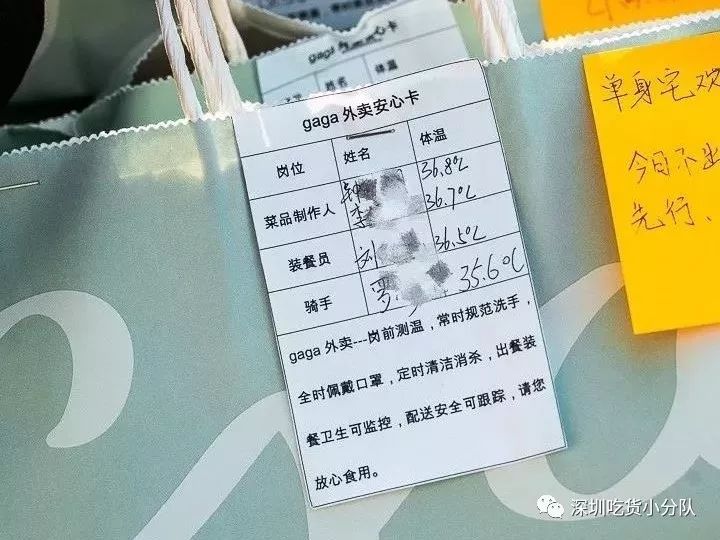 gaga
姓名
体温
gaga 外卖安心卡
岗位 姓名 体温
菜品制作人 钟 36.8℃
李 36.7℃
装餐员 刘 36.5℃
骑手 罗 35.6℃
gaga 外卖---岗前测温，常时规范洗手，
全时佩戴口罩，定时清洁消杀，出餐装
餐卫生可监控，配送安全可跟踪，请您
放心食用。
单身宅欢
今日不出
先行、
深圳吃货小分队